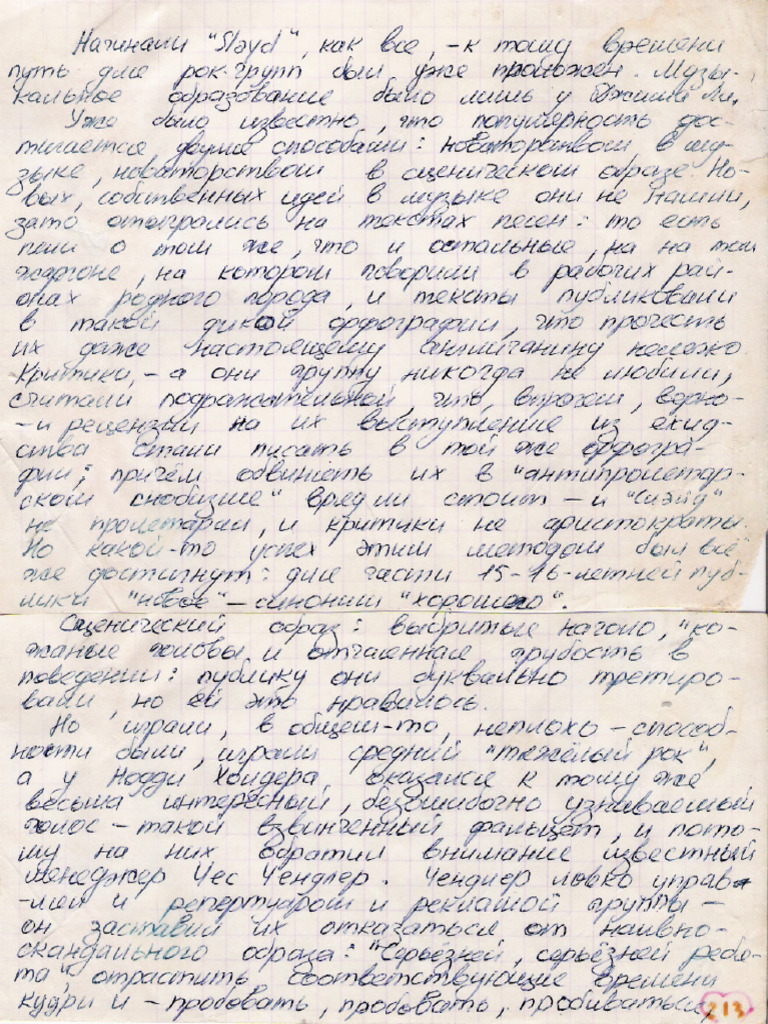 Начинали "Slayd", как все, - к тому времени
путь для рок-групп был уже проложен. Музы-
кальное образование было лишь у Джимми Ли.
Уже было известно, что популярность дос-
тигается двумя способами: новаторством в му-
зыке, новаторством в сценическом образе. Но-
вых, собственных идей в музыке они не нашли,
зато отыгрались на текстах песен: то есть
пели о том же, что и остальные, на на том
жаргоне, на котором говорили в рабочих рай-
онах родного города, и тексты публиковали
в такой дикой орфографии, что прочесть
их даже настоящему англичанину нелегко.
Критики, - а они группу никогда не любили,
считали подражательной, что, впрочем, верно-
- и рецензии на их выступление из ехид-
ства стали писать в той же орфогра-
фии; причём обвинять их в "антипролетар-
ском снобизме" вряд ли стоит - и "Слэйд"
не пролетарии, и критики не аристократы.
Но какой-то успех этим методом был всё
же достигнут: для части 15-16-летней пуб-
лики "новое" - синоним "хорошего".
Сценический образ: выбритые наголо, "ко-
жаные головы, и отчаянная грубость в
поведении: публику они буквально третиро-
вали, но ей это нравилось.
Но играли, в общем-то, неплохо - способ-
ности были, играли средний "тяжёлый рок",
а у Нодди Холдера, оказался к тому же
весьма интересный, безошибочно узнаваемый
голос - такой взвинченный фальцет, и пото-
му на них обратил внимание известный
менеджер Чес Чендлер. Чендлер ловко управ-
лял и репертуаром и рекламой группы -
он заставил их отказаться от наивно-
скандального образа: "Серьёзней, серьёзней ребя-
та", отрастить соответствующие времени
кудри и - пробовать, пробовать, пробиваться,
213